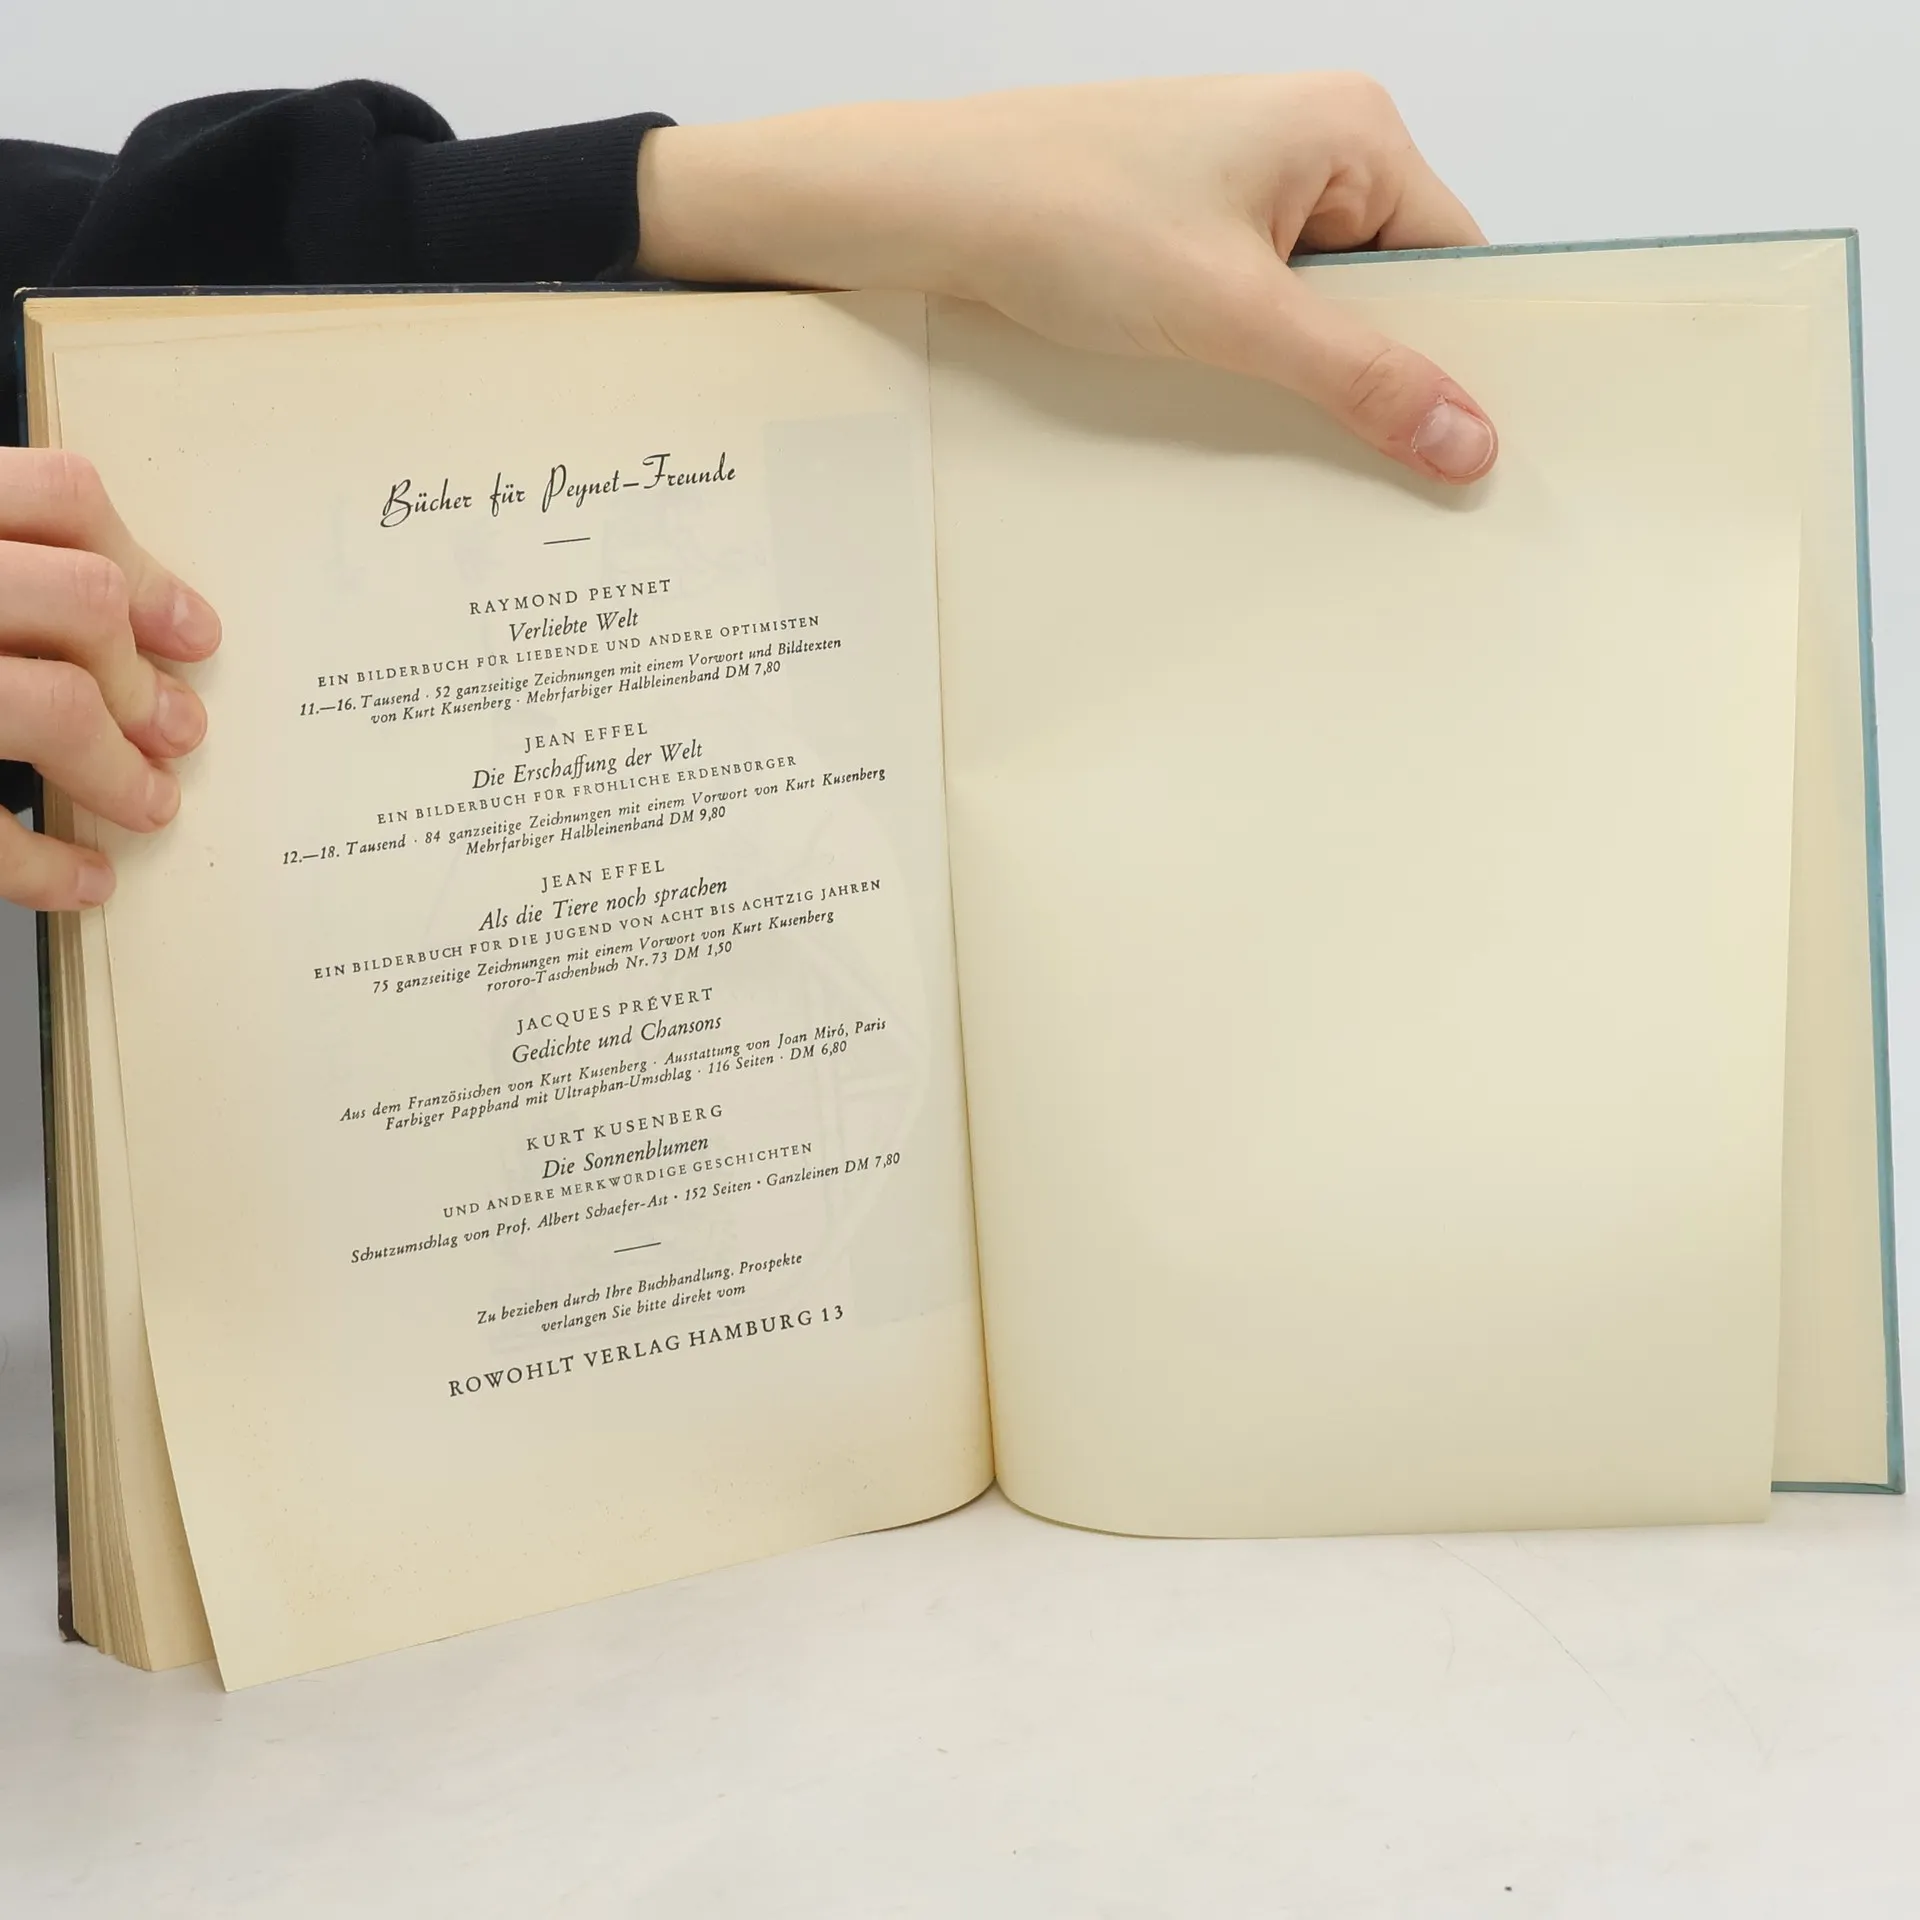 Bücher für Peynet–Freunde
RAYMOND PEYNET
Verliebte Welt
EIN BILDERBUCH FÜR LIEBENDE UND ANDERE OPTIMISTEN
11.—16. Tausend · 52 ganzseitige Zeichnungen mit einem Vorwort und Bildtexten
von Kurt Kusenberg · Mehrfarbiger Halbleinenband DM 7,80
JEAN EFFEL
Die Erschaffung der Welt
EIN BILDERBUCH FÜR FRÖHLICHE ERDENBÜRGER
12.—18. Tausend · 84 ganzseitige Zeichnungen mit einem Vorwort von Kurt Kusenberg
Mehrfarbiger Halbleinenband DM 9,80
JEAN EFFEL
Als die Tiere noch sprachen
EIN BILDERBUCH FÜR DIE JUGEND VON ACHT BIS ACHTZIG JAHREN
75 ganzseitige Zeichnungen mit einem Vorwort von Kurt Kusenberg
rororo-Taschenbuch Nr. 73 DM 1,50
JACQUES PRÉVERT
Gedichte und Chansons
Aus dem Französischen von Kurt Kusenberg · Ausstattung von Joan Miró, Paris
Farbiger Pappband mit Ultraphan-Umschlag · 116 Seiten · DM 6,80
KURT KUSENBERG
Die Sonnenblumen
UND ANDERE MERKWÜRDIGE GESCHICHTEN
Schutzumschlag von Prof. Albert Schaefer-Ast · 152 Seiten · Ganzleinen DM 7,80
Zu beziehen durch Ihre Buchhandlung. Prospekte
verlangen Sie bitte direkt vom
ROWOHLT VERLAG HAMBURG 13